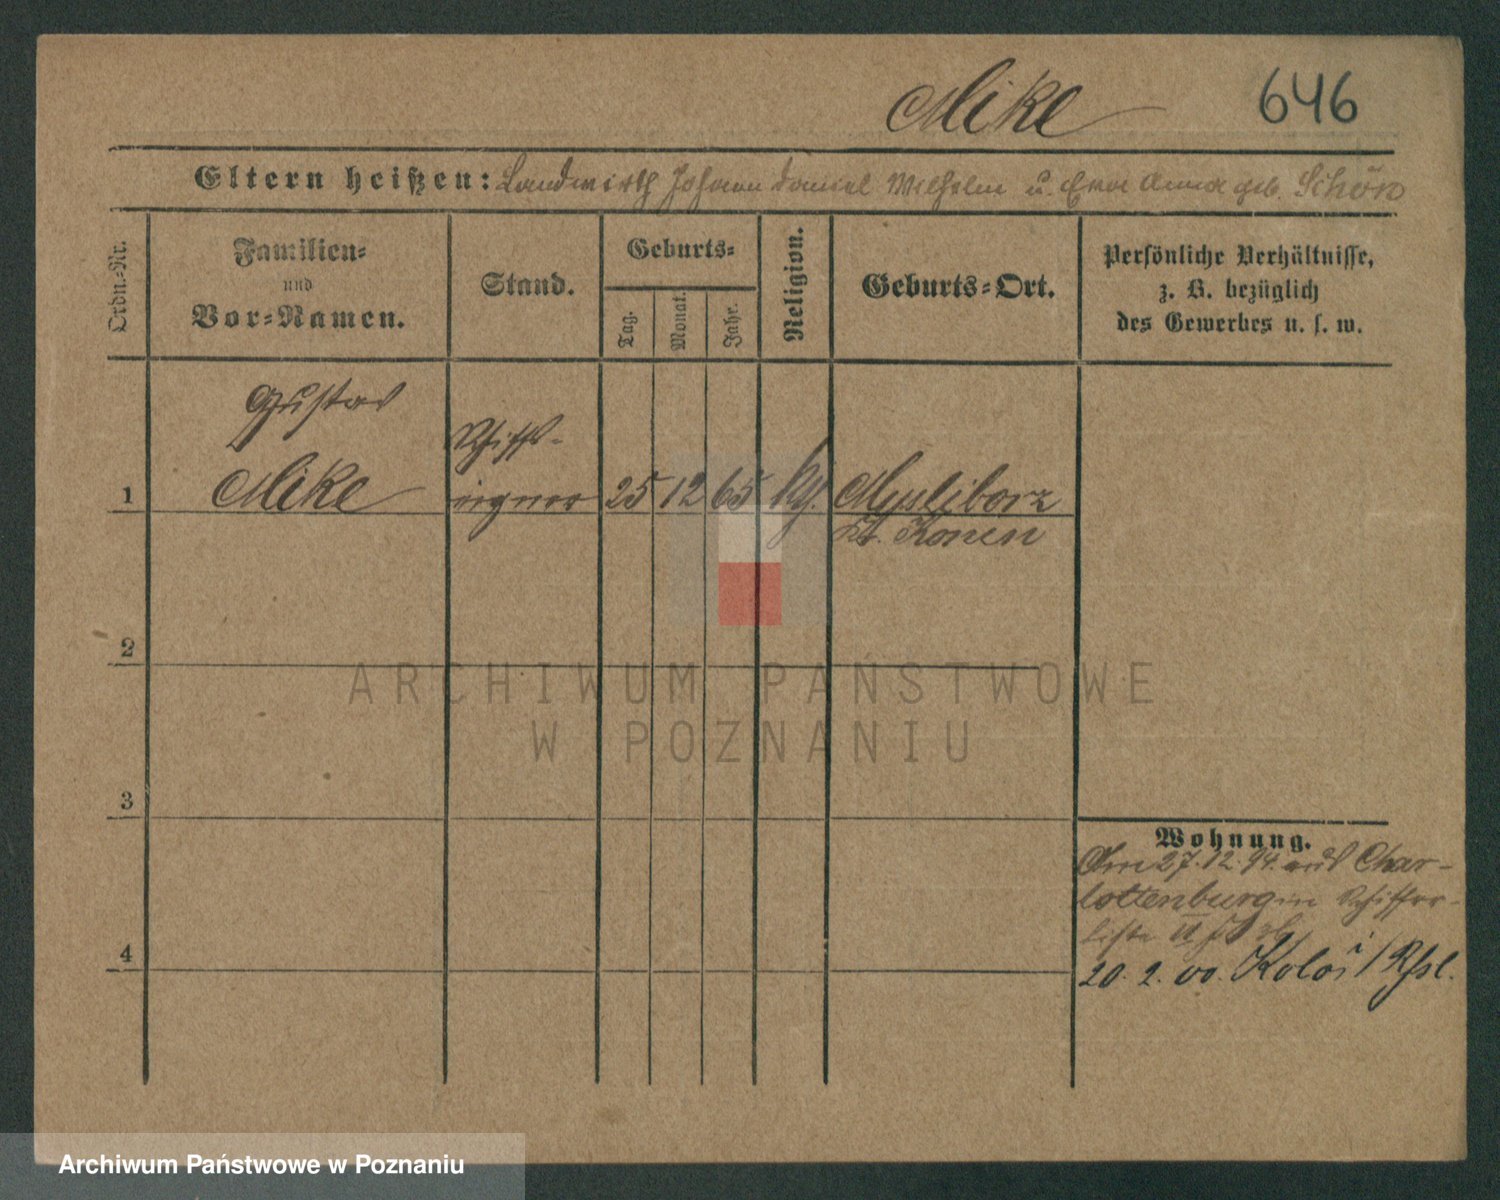 Mike 646
Eltern heißen: Landwirth Johann Daniel Wilhelm u. Eva Anna geb. Schön
Ordn.-Nr.
Familien-
und
Vor-Namen.
Stand.
Geburts-
Tag.
Monat.
Jahr.
Religion.
Geburts-Ort.
Persönliche Verhältnisse,
z. B. bezüglich
des Gewerbes u. s. w.
Gustav
Schiffs-
1 Mike eigner 25 12 65 Mysliborz
Kr. Konin
2
3
4
Wohnung.
Am 27.12.94. aus Char-
lottenburg in Schiffer-
liste II
20. 2. 00. Kolo i/Rßl.
ARCHIWUM PAŃSTWOWE
W POZNANIU
Archiwum Państwowe w Poznaniu